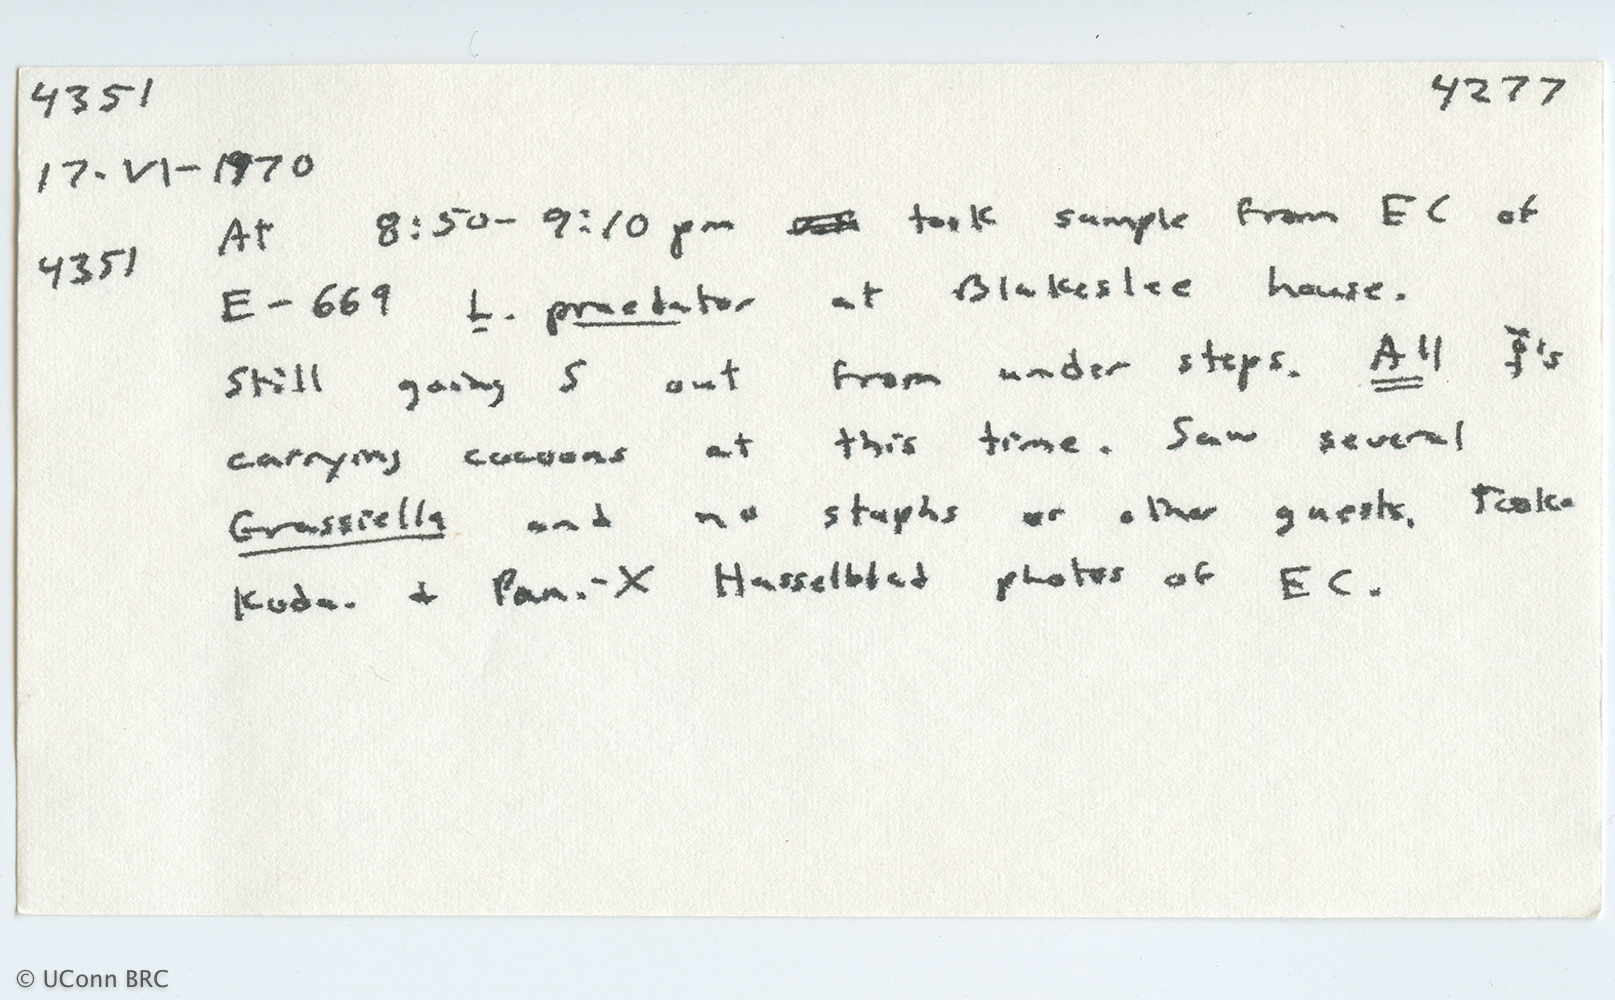 4351 4277
17-VI-1970
At 8:50-9:10 pm took sample from EC of
4351
E-669 L. praedator at Blakeslee house.
Still going S out from under steps. All ☿'s
carrying cocoons at this time. Saw several
Grassiella and no staphs or other guests. Took
Koda. + Pan.-X Hasselblad photos of EC.
© UConn BRC